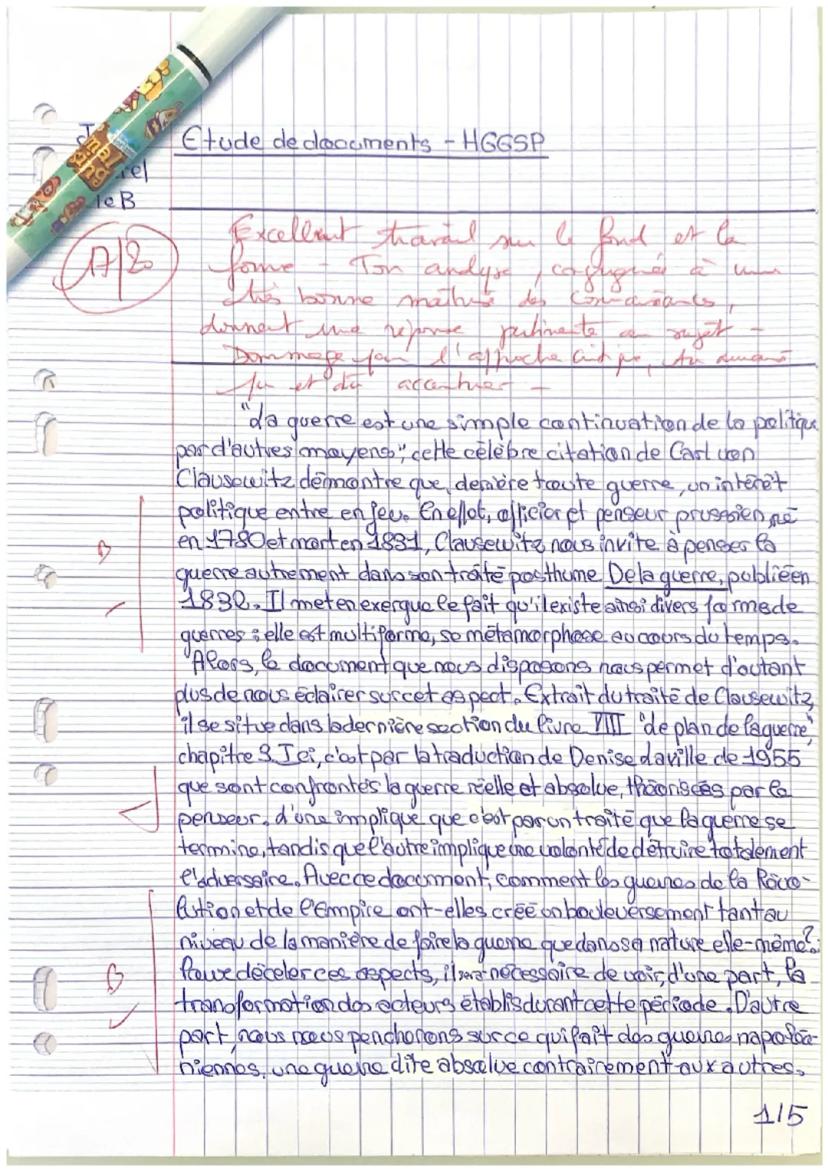 Etude de documents - HGGSP
rel
leB
17/20
Excellent travail sur le fond et la
forme - Ton analyse, conjuguée à une
très bonne maîtrise des connaissances,
donnent une réponse pertinente au sujet -
Dommage pour l'approche critique, tu aurais
pu et dû accentuer -
"La guerre est une simple continuation de la politique
par d'autres moyens", cette célèbre citation de Carl von
Clausewitz démontre que, derrière toute guerre, un intérêt
politique entre en jeu. En effet, officier et penseur prussien né
en 1780 et mort en 1831, Clausewitz nous invite à penser la
guerre autrement dans son traité posthume De la guerre, publié en
1832. Il met en exergue le fait qu'il existe ainsi divers forme de
guerres : elle est multiforme, se métamorphose au cours du temps.
Alors, le document que nous disposons nous permet d'autant
plus de nous éclairer sur cet aspect. Extrait du traité de Clausewitz,
il se situe dans la dernière section du livre VIII "de plan de la guerre",
chapitre 3. Ici, c'est par la traduction de Denise daville de 1955
que sont confrontés la guerre réelle et absolue, théorisées par le
penseur. d'une implique que c'est par un traité que la guerre se
termine, tandis que l'autre implique une volonté de détruire totalement
l'adversaire. Avec ce document, comment les guerres de la Révo-
lution et de l'Empire ont-elles créé un bouleversement tant au
niveau de la manière de faire la guerre que dans sa nature elle-même?
Pour déceler ces aspects, il sera nécessaire de voir, d'une part, la
transformation des acteurs établis durant cette période. D'autre
part, nous nous pencherons sur ce qui fait des guerres napoléo-
niennes, une guerre dite absolue contrairement aux autres.
1/5